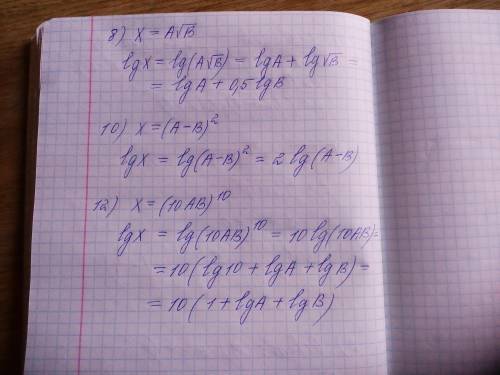 8) x = A√B
lgx = lg(A√B) = lgA + lg√B =
= lgA + 0,5lgB
10) x = (A-B)²
lgx = lg(A-B)² = 2lg(A-B)
12) x = (10AB)¹⁰
lgx = lg(10AB)¹⁰ = 10lg(10AB) =
= 10(lg10 + lgA + lgB) =
= 10(1 + lgA + lgB)